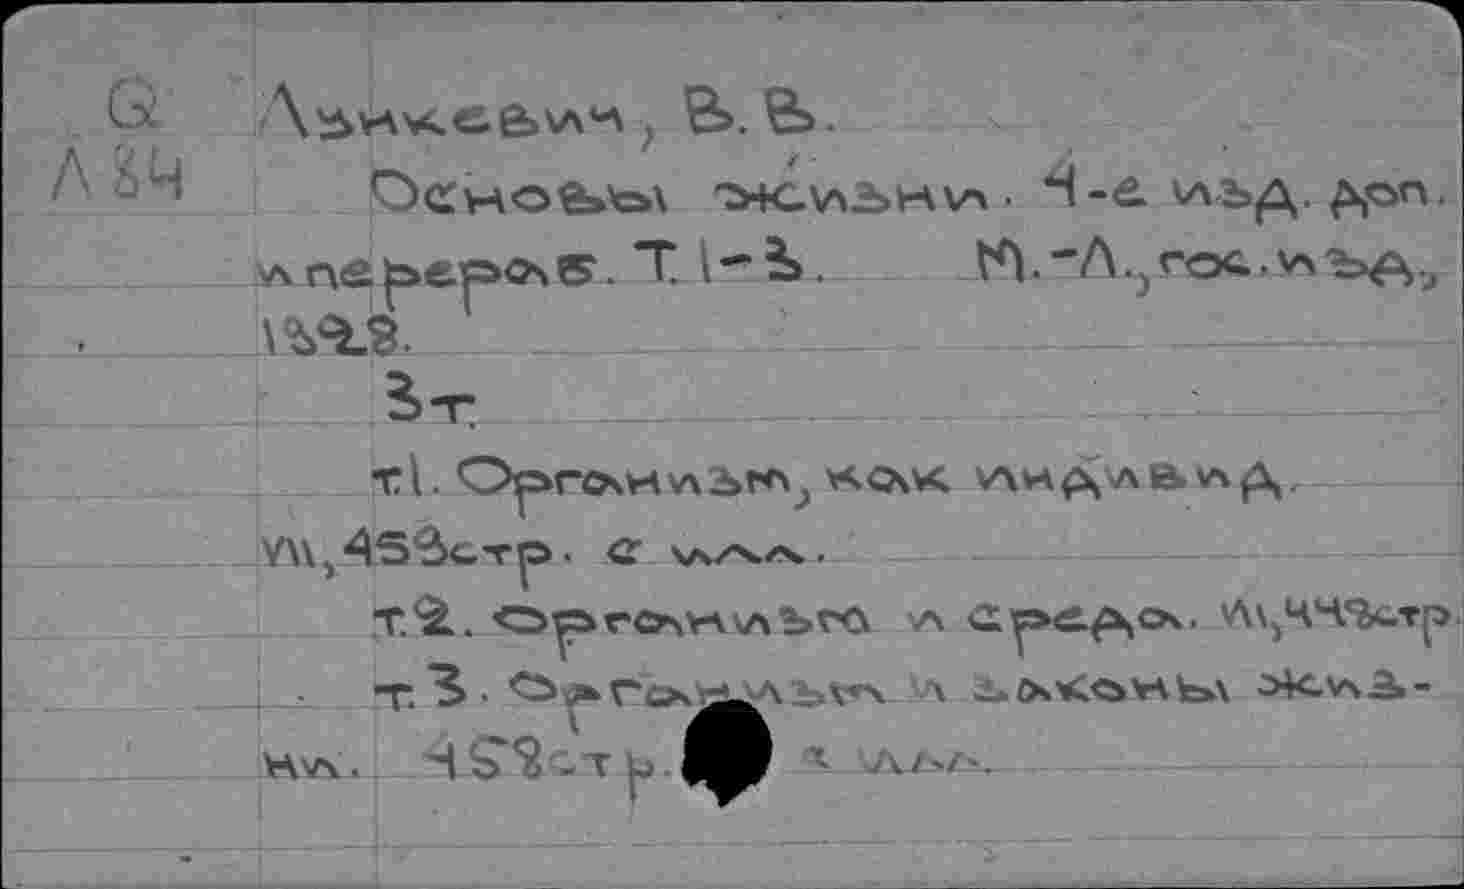 G Лункевич, В.В.
Л 84 Основы жизни. 4-е изд. доп.
и перераб. Т. 1-3. М.-Л., гос. изд.,
1928.
3 т.
т.1. Организм, как индивид.
VII, 453 стр. с илл.
т.2. Организм и среда. VI, 448 стр
т.3. Организм и законы жиз-
ни. 458 стр. с илл.